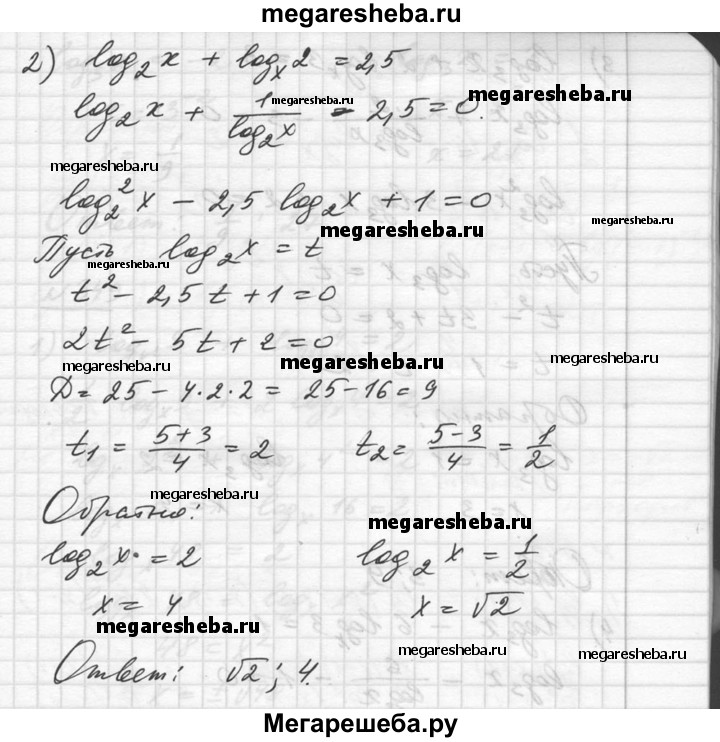 megaresheba.ru
2) log₂x + logₓ2 = 2,5
log₂x + 1/log₂x - 2,5 = 0.
megaresheba.ru
megaresheba.ru
megaresheba.ru
log₂²x - 2,5 log₂x + 1 = 0
megaresheba.ru
Пусть log₂x = t
megaresheba.ru
megaresheba.ru
t² - 2,5t + 1 = 0
2t² - 5t + 2 = 0
megaresheba.ru
megaresheba.ru
megaresheba.ru
D = 25 - 4·2·2 = 25 - 16 = 9
t₁ = (5+3)/4 = 2 t₂ = (5-3)/4 = 1/2
megaresheba.ru
Обратно:
megaresheba.ru
log₂x = 2 log₂x = 1/2
x = 4 x = √2
megaresheba.ru
megaresheba.ru
megaresheba.ru
Ответ: √2; 4.
Мегарешеба.ру